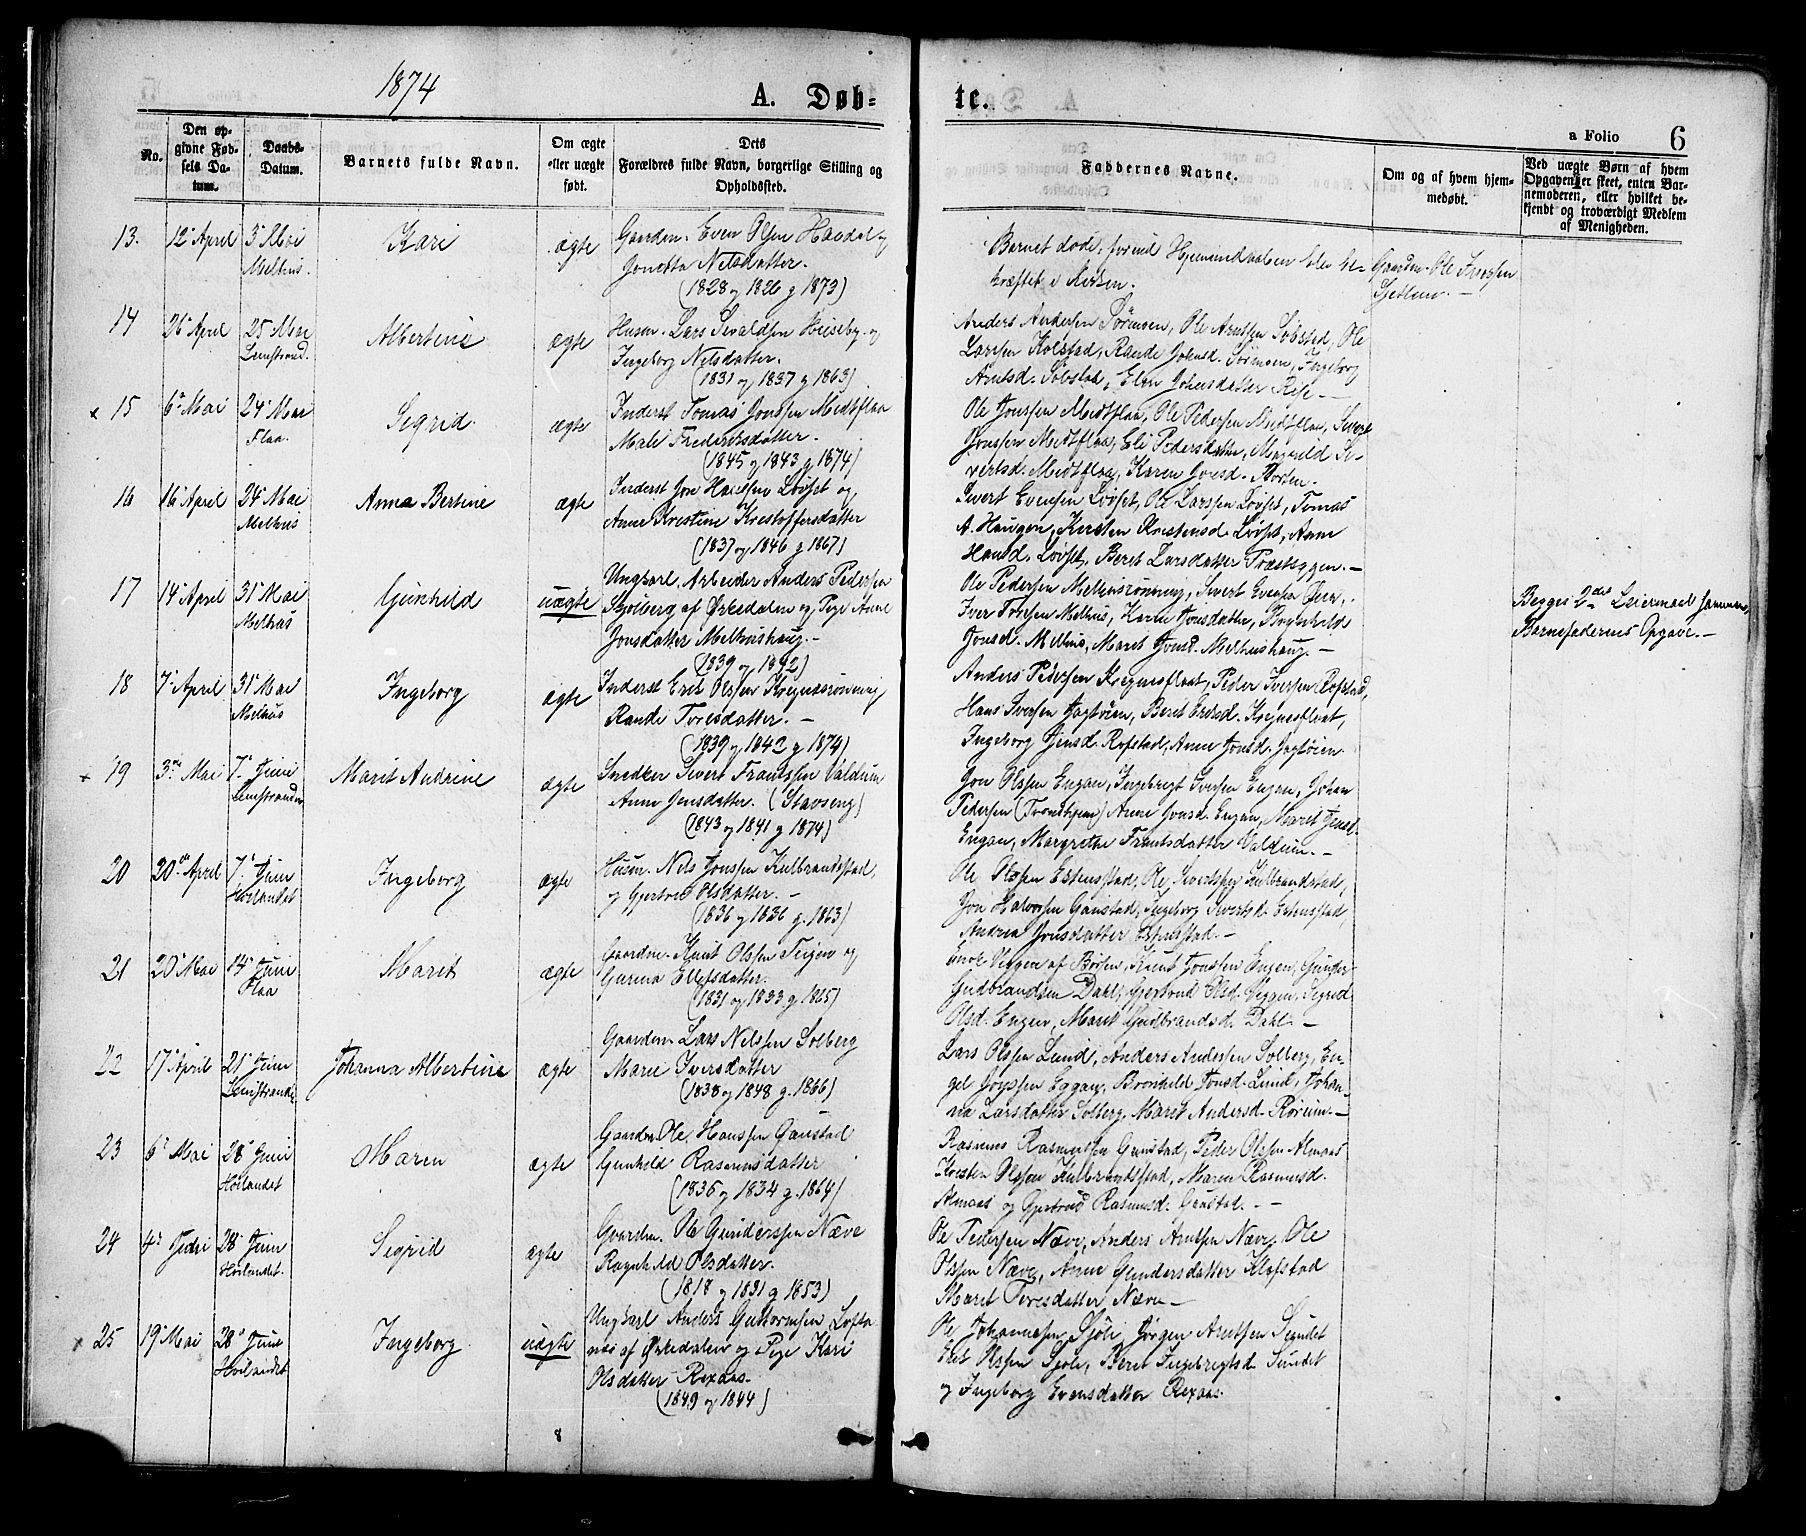 1874
A. Døb-
te.
a Folio 6
No.
Den op-
givne Fød-
sels Da-
tum.
Daabs-
Datum.
Barnets fulde Navn.
Om ægte
eller uægte
født.
Dets
Forældres fulde Navn, borgerlige Stilling og
Opholdssted.
Faddernes Navne.
Om og af hvem hjem-
medøbt.
Ved uægte Børn af hvem
Opgaven er skeet, enten Bar-
nemoderen, eller hvilket be-
kjendt og troværdigt Medlem
af Menigheden.
13. 12 April 3 Mai
Melhus.
Kari
ægte
Gaardm. Even Olsen Havdal og
Jonetta Nilsdatter.
(1828 og 1826 g 1873)
Barnet døde, forind Hjemmedaaben blev be-
kræftet i Kirken.
Gaardm. Ole Iversen
14 26 April 25 Mai
Lenstrand.
Albertine
ægte
Husm. Lars Sivaldsen Huseby og
Ingeborg Nilsdatter.
(1831 og 1837 g 1863)
Anders Andersen Sörmoen, Ole Arntsen Söbstad, Ole
Larsen Kolstad, Rande Johnsd. Sörmoen, Ingeborg
Arntsd. Söbstad, Elen Johnsdatter
x 15 6 Mai 24 Mai
Flaa.
Sigrid.
ægte
Inderst Tomas Jonssen Midtflaa
Mali Frederiksdatter.
(1845 og 1843 g 1874)
Ole Jonssen Midtflaa, Ole Pedersen Midtflaa, Sivert
Jonssen Midtflaa, Eli Pedersdatter, Magnhild Si-
vertsd. Midtflaa, Karen Jonsd. Borten.
16 16 April 24 Mai
Melhus
Anna Bertine
ægte
Inderst Jon Hansen Løvset og
Anne Kristine Kristoffersdatter
(1837 og 1846 g 1867)
Sivert Evensen Løvset, Ole Larssen Løvset, Tomas
A. Haugen, Kirsten Kristensd. Løvset, Anne
Hansd. Løvset, Beret Larsdatter Præstyggen.—
17 14 April 31 Mai
Melhus
Gunhild
uægte
Ungkarl. Arbeider Anders Pedersen
Solberg af Ørkedalen og Pige Anne
Jonsdatter Melhushaug.—
(1839 og 1842)
Ole Pedersen Melhusrønning, Sivert Evensen
Iver Toresen Melhus, Karen Jonsdatter, Brynhild
Jonsd. Melhus, Maret Jonsd. Melhushaug.—
Begges 2det Leiermaal sammen
Barnefaderens Opgave.—
18 7 April 31 Mai
Melhus
Ingeborg
ægte
Inderst Erik Olssen Kregnesrönning
Rande Toresdatter.—
(1839 og 1842 g 1874)
Anders Pedersen Kregnesflaat, Peder Iversen Rofstad,
Hans Iversen Jagtøien, Beret Eriksd. Kregnesflaat,
Ingeborg Jensd. Rofstad, Anne Jonsd. Jagtøien
x 19 3 Mai 7 Juni
Lenstranden
Marit Andrine
ægte
Snedker Sivert Frantssen Valdum
Anne Jensdatter. (Stavseng)
(1843 og 1841 g 1874)
Jon Olssen Engan, Ingebrigt Iversen Engen, Johan
Pedersen (Trondhjem) Anne Jonsd. Engan, Maret Jensd.
Engan, Margrethe Frantsdatter Valdum.—
20 20 April 7 Juni
Hölandet
Ingeborg
ægte
Husm. Nils Jonssen Kulbrandstad,
og Gjertrud Olsdatter.—
(1836 og 1836 g. 1863)
Ole Olssen Estenstad, Ole Sivertsen Kulbrandstad,
Jon Halvorsen Gaustad, Ingeborg Sivertsd. Estenstad,
Andrea Jonsdatter Estenstad.—
21 20 Mai 14 Juni
Flaa
Maret
ægte
Gaardm. Knut Olssen Teigen og
Gurina Ellefsdatter.
(1831 og 1833 g. 1865)
Viggen af Børsen, Knut Jonssen Engen, Gunder
Gudbrandsen Dahl, Gjertrud Olsd. Viggen, Sigrid
Olsd. Engen, Maret Gudbrandsd. Dahl.—
22 17 April 21 Juni
Lenstranden
Johanna Albertine
ægte
Gaardm. Lars Nilssen Solberg
Marie Iversdatter
(1838 og 1848 g. 1866)
Lars Olssen Lund, Anders Andersen Solberg, En-
gel Eggan, Brynhild Jonsd. Lund, Johan-
na Larsdatter Solberg, Maret Andersd. Röeum.—
23 6 Mai 28 Juni
Hölandet
Maren
ægte
Gaardm. Ole Hanssen Gaustad
Gunhild Rasmusdatter
(1836 og 1834 g. 1864)
Rasmus Rasmussen Gaustad, Peder Olssen Almaas
Kristen Olssen Kulbrandstad, Maren Rasmusd.
Almaas og Gjertrud Rasmusd. Gaustad.—
24 4 Juni 28 Juni
Hölandet.
Sigrid
ægte
Gaardm. Ole Gunderssen Næve
Ragnhild Olsdatter.
(1818 og 1831 g 1853)
Ole Pedersen Næve, Anders Arntsen Næve, Ole
Olssen Næve, Anne Gundersdatter Klefstad
Maret Toresdatter Næve—
x 25 19 Mai 28 Juni
Hölandet
Ingeborg
uægte
Ungkarl Anders Guttormsen Lofta
nes af Ørkedalen og Pige Kari
Olsdatter Rexaas.
(1849 og 1844)
Ole Johannesen Sjöli, Jörgen Arntsen Sundet
Erik Olssen Sjöli, Beret Ingebrigtsd. Sundet
og Ingeborg Evensdatter Rexaas.
8